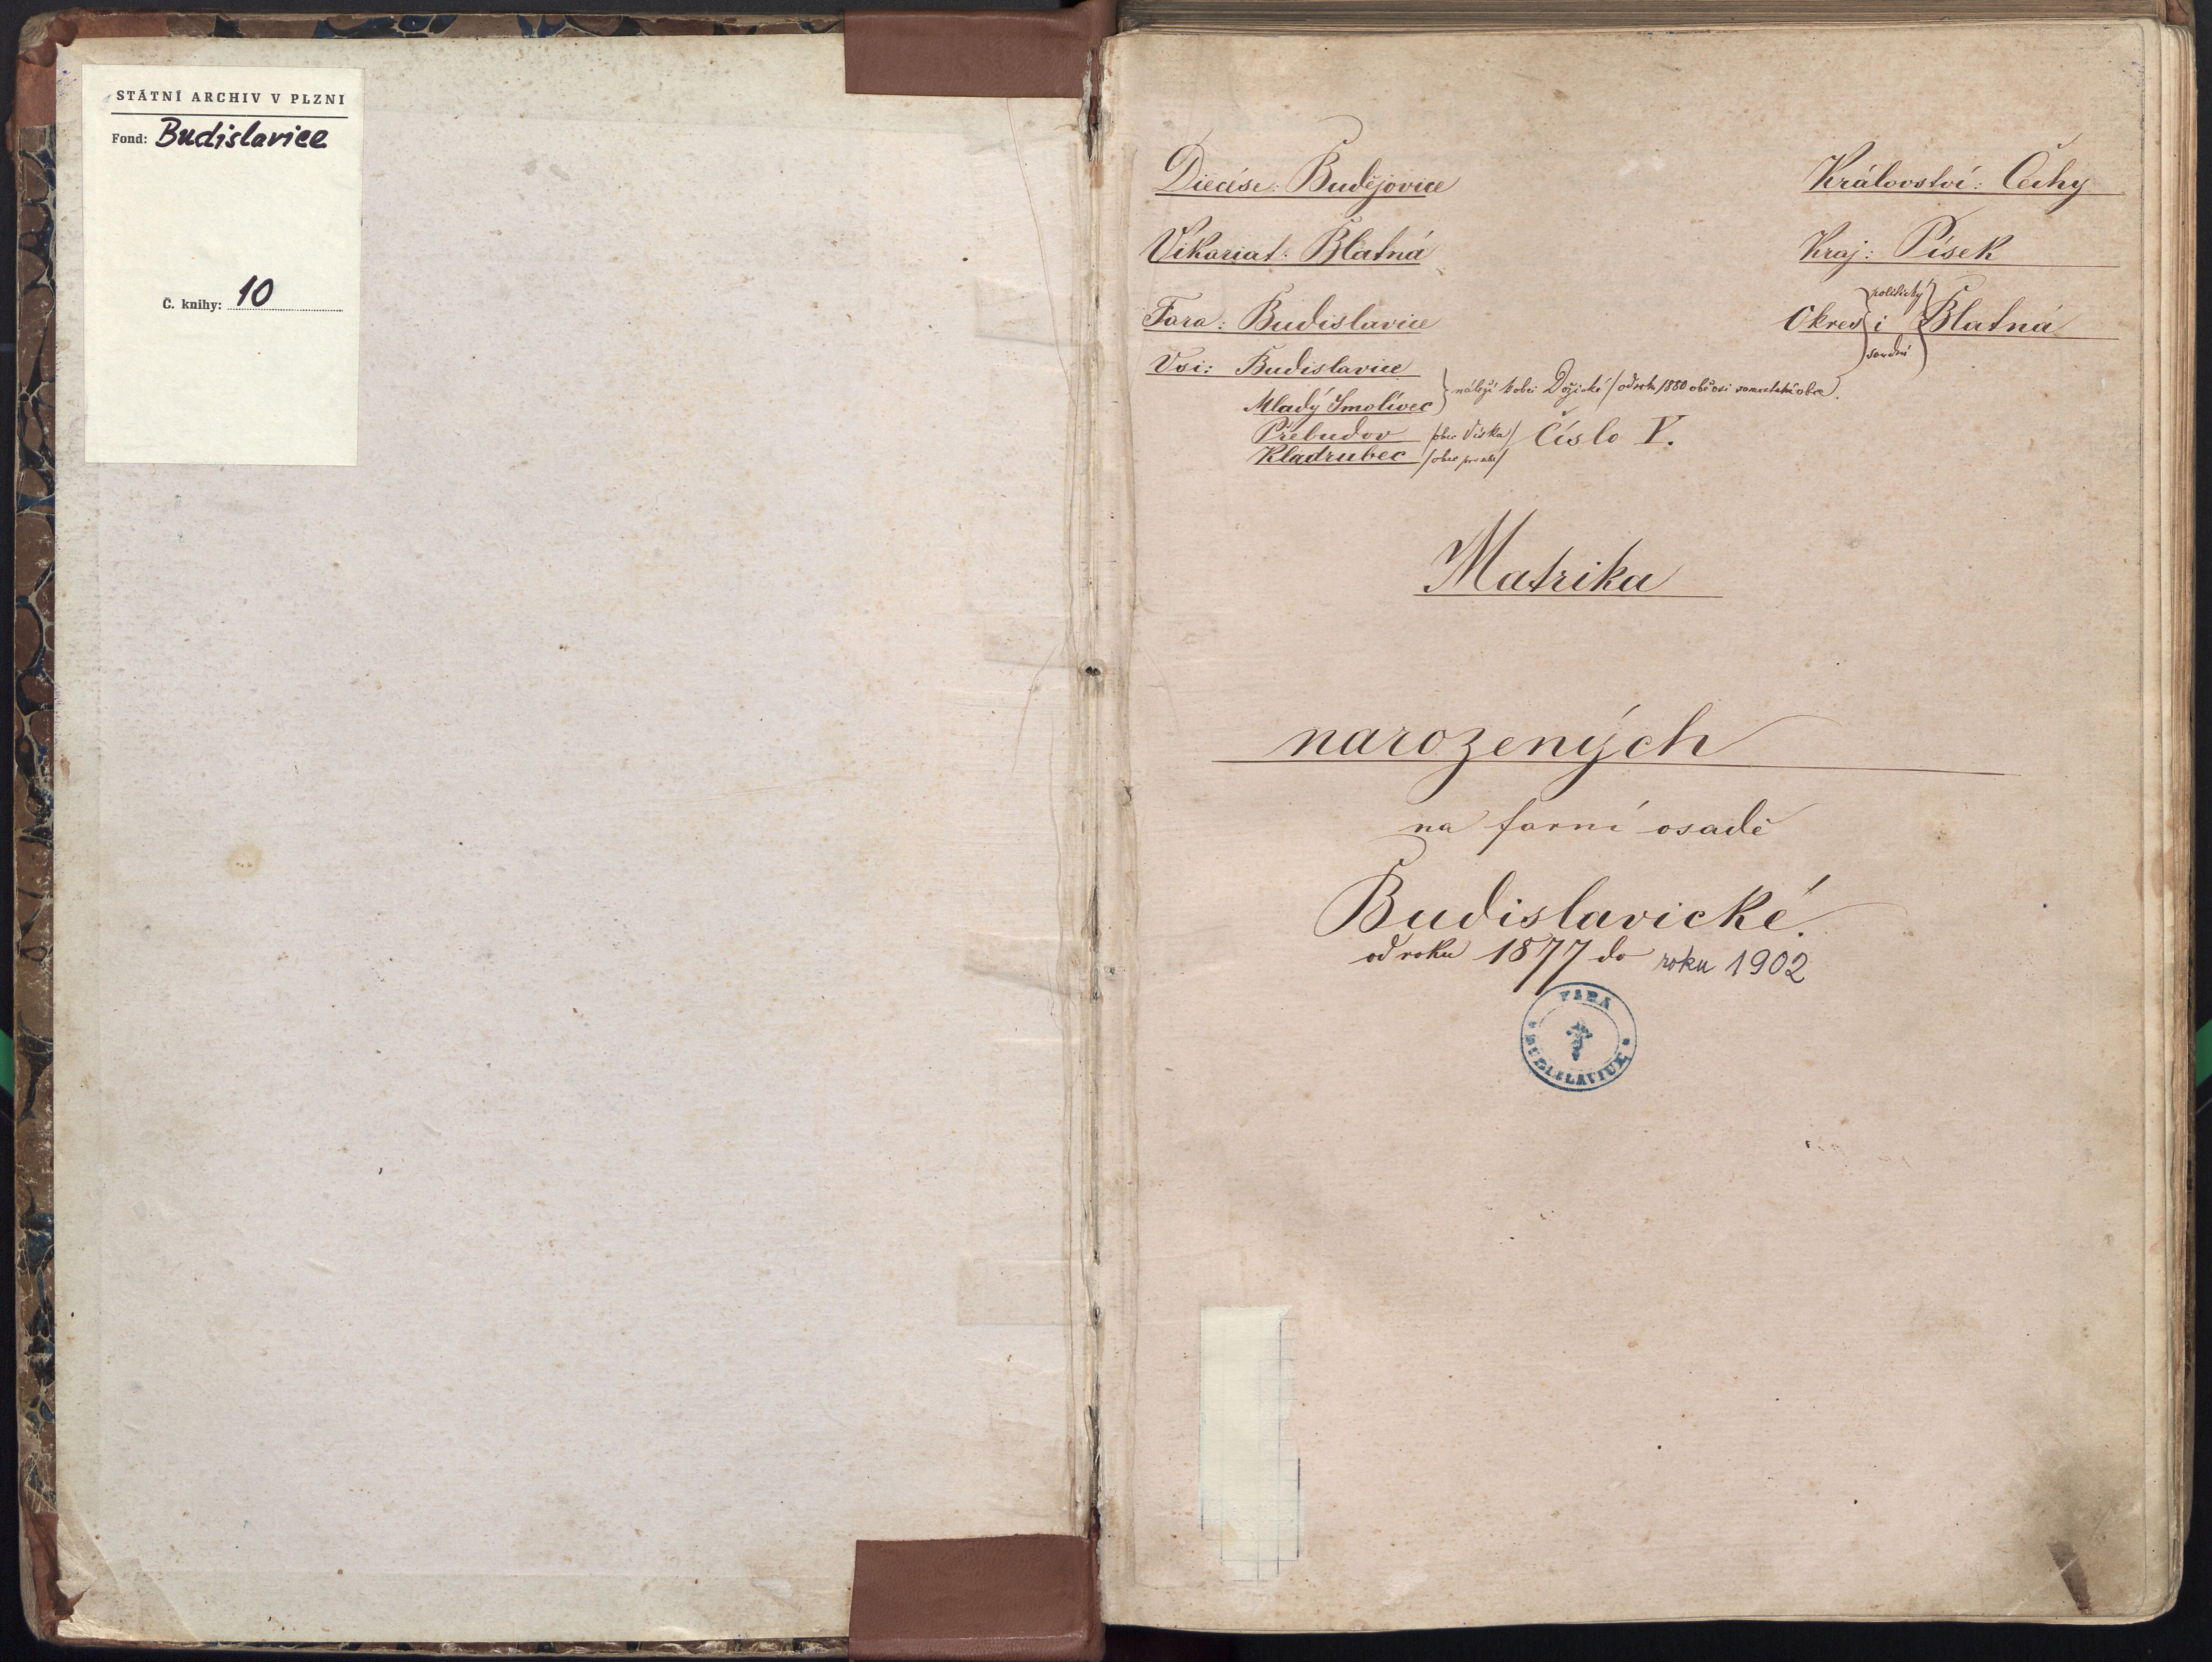 STÁTNÍ ARCHIV V PLZNI
Fond: Budislavice
Č. knihy: 10
Diecése: Budějovice
Království: Čechy
Vikariat: Blatná
Kraj: Písek
Fara: Budislavice
Okres politický i soudní Blatná
Vsi: Budislavice
Mladý Smolivec
náleží k obci Dožické /od roku 1880 obě vsi samostatné obce.
Přebudov /obec Víska/
Číslo V.
Kladrubec /obec pro sebe/
Matrika
narozených
na farní osadě
Budislavické.
od roku 1877 do roku 1902
FARA
BUDISLAVICE